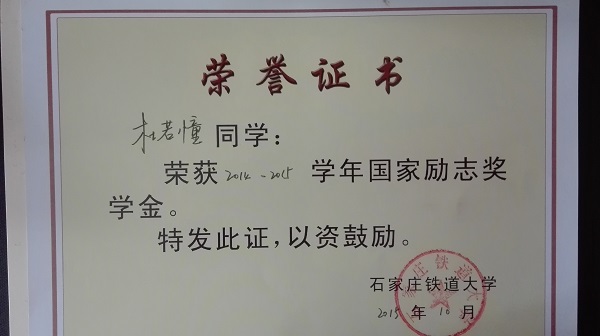 荣誉证书
杜若憧同学：
荣获2014-2015学年国家励志奖
学金。
特发此证，以资鼓励。
石家庄铁道大学
2015年10月